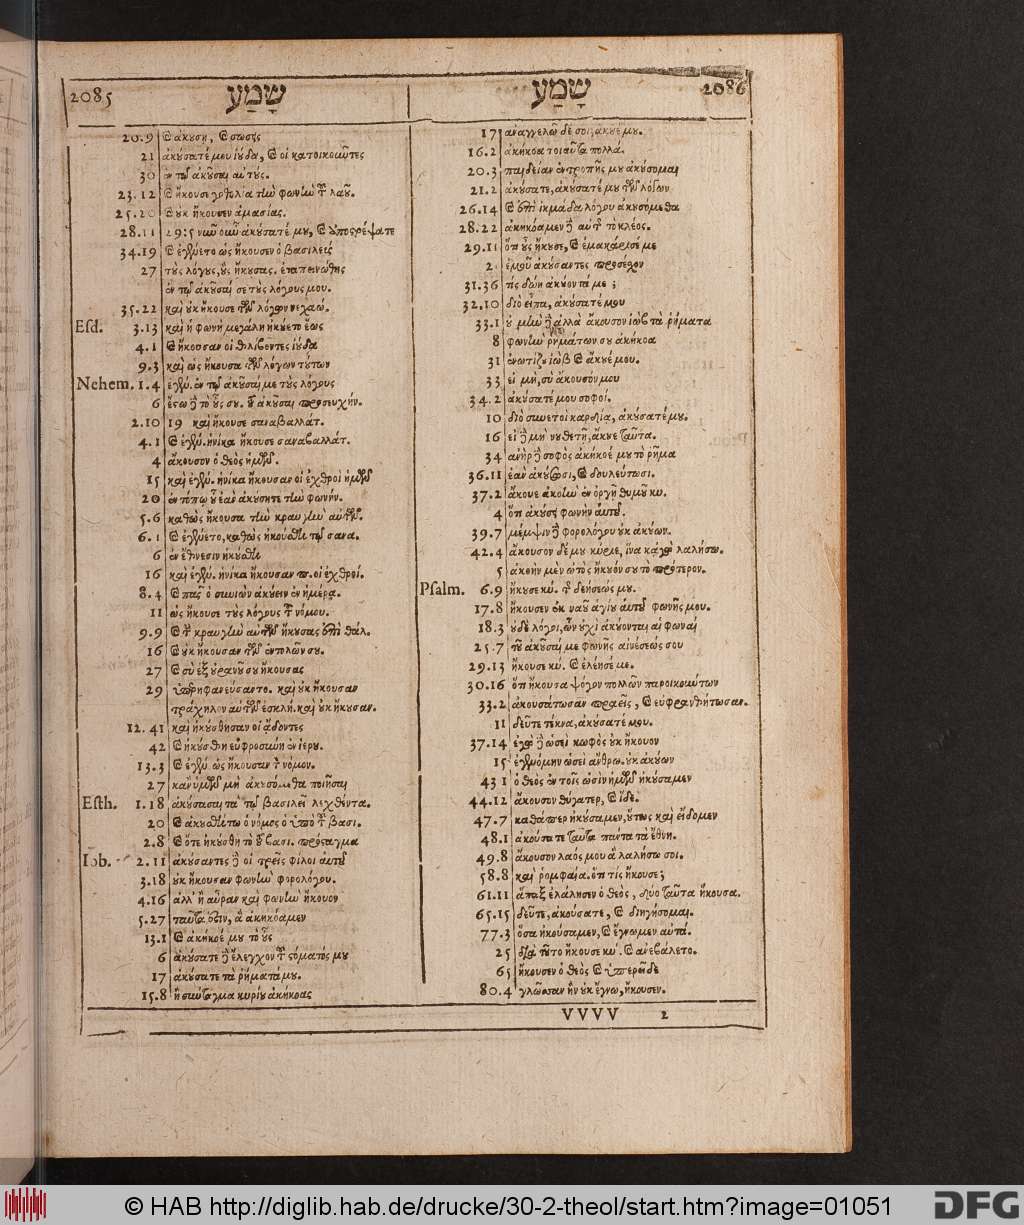 2085 שָׁמַע
שָׁמַע 2086
20.9 ϗ ἀκούσῃ, ϗ σώσεις
21 ἀκούσατέ μου ἰούδα, ϗ οἱ κατοικοῦντες
30 ἐν τῷ ἀκοῦσαι αὐτούς.
23.12 ϗ ἤκουσε γοθολία τὴν φωνὴν τοῦ λαοῦ.
25.20 ϗ οὐκ ἤκουσεν ἀμασίας.
28.11 29:5 νῦν οὖν ἀκούσατέ μου, ϗ ὑποστρέψατε
34.19 ϗ ἐγένετο ὡς ἤκουσεν ὁ βασιλεὺς
27 τοὺς λόγους, οὓς ἤκουσας. ἐταπεινώθης
ἐν τῷ ἀκοῦσαί σε τοὺς λόγους μου.
35.22 καὶ οὐκ ἤκουσε τῶν λόγων νεχαώ.
Esd. 3.13 καὶ ἡ φωνὴ μεγάλη ἠκούετο ἕως
4.1 ϗ ἤκουσαν οἱ θλίβοντες ἰούδα
9.3 καὶ ὡς ἤκουσα τῶν λόγων τούτων
Nehem. 1.4 ἐγέν. ἐν τῷ ἀκοῦσαί με τοὺς λόγους
6 ἔστω δὴ τὸ οὖς σου. τοῦ ἀκοῦσαι προσευχήν.
2.10 19 καὶ ἤκουσε σαναβαλλάτ.
4.1 ϗ ἐγέν. ἡνίκα ἤκουσε σαναβαλλάτ.
4 ἄκουσον ὁ θεὸς ἡμῶν.
15 καὶ ἐγέν. ἡνίκα ἤκουσαν οἱ ἐχθροὶ ἡμῶν
20 ἐν τόπῳ οὗ ἐὰν ἀκούσητε τὴν φωνήν.
5.6 καθὼς ἤκουσα τὴν κραυγὴν αὐτῶν.
6.1 ϗ ἐγένετο, καθὼς ἠκούσθη τῷ σανα.
6 ἐν ἔθνεσιν ἠκούσθη
16 καὶ ἐγέν. ἡνίκα ἤκουσαν π. οἱ ἐχθροί.
8.4 ϗ πᾶς ὁ συνιὼν ἀκούειν ἐν ἡμέρᾳ.
11 ὡς ἤκουσε τοὺς λόγους τοῦ νόμου.
9.9 ϗ τὴν κραυγὴν αὐτῶν ἤκουσας ἐπὶ θάλ.
16 ϗ οὐκ ἤκουσαν τῶν ἐντολῶν σου.
27 ϗ σὺ ἐξ οὐρανοῦ σου ἤκουσας
29 ὑπερηφανεύσαντο. καὶ οὐκ ἤκουσαν
τράχηλον αὐτῶν ἐσκλή. καὶ οὐκ ἤκουσαν.
12.41 καὶ ἠκούσθησαν οἱ ᾄδοντες
42 ϗ ἠκούσθη εὐφροσύνη ἐν ἱερου.
13.3 ϗ ἐγέν. ὡς ἤκουσαν τὸν νόμον.
27 καὶ ὑμῶν μὴ ἀκουσόμεθα ποιῆσαι
Esth. 1.18 ἀκούσασαι τὰ τῷ βασιλεῖ λεχθέντα.
20 ϗ ἀκουσθήτω ὁ νόμος ὁ ὑπὸ τοῦ βασι.
2.8 ϗ ὅτε ἠκούσθη τὸ τοῦ βασι. πρόσταγμα
Iob. 2.11 ἀκούσαντες δὲ οἱ τρεῖς φίλοι αὐτοῦ
3.18 οὐκ ἤκουσαν φωνὴν φορολόγου.
4.16 ἀλλ' ἢ αὔραν καὶ φωνὴν ἤκουον
5.27 ταῦτά ἐστιν, ἃ ἀκηκόαμεν
13.1 ϗ ἀκήκοέ μου τὸ οὖς
6 ἀκούσατε δὲ ἔλεγχον τοῦ στόματός μου
17 ἀκούσατε τὰ ῥήματά μου.
15.8 ἢ σύνταγμα κυρίου ἀκήκοας
17 ἀναγγελῶ δέ σοι, ἄκουέ μου.
16.2 ἀκήκοα τοιαῦτα πολλά.
20.3 παιδείαν ἐντροπῆς μου ἀκούσομαι
21.2 ἀκούσατε, ἀκούσατέ μου τῶν λόγων
26.14 ϗ ἐπὶ ἰκμάδα λόγου ἀκουσόμεθα
28.22 ἀκηκόαμεν δὲ αὐτῆς τὸ κλέος.
29.11 ὅτι οὖς ἤκουσε, ϗ ἐμακάρισέ με
2 ἐμοῦ ἀκούσαντες προσέσχον
31.36 τίς δῴη ἀκούοντά με;
32.10 διὸ εἶπα, ἀκούσατέ μου
33.1 οὐ μὴν δὲ ἀλλὰ ἄκουσον ἰὼβ τὰ ῥήματα
8 φωνὴν ῥημάτων σου ἀκήκοα
31 ἐνωτίζου ἰὼβ ϗ ἄκουέ μου.
33 εἰ μὴ, σὺ ἄκουσόν μου
34.2 ἀκούσατέ μου σοφοί.
10 διὸ συνετοὶ καρδίᾳ, ἀκούσατέ μου.
16 εἰ δὲ μὴ νουθετῇ, ἄκουε ταῦτα.
34 ἀνὴρ δὲ σοφὸς ἀκήκοέ μου τὸ ῥῆμα
36.11 ἐὰν ἀκούσωσι, ϗ δουλεύσωσι.
37.2 ἄκουε ἀκοὴν ἐν ὀργῇ θυμοῦ κυ.
4 ὅτι ἀκούσει φωνὴν αὐτοῦ.
39.7 μέμψιν δὲ φορολόγου οὐκ ἀκούων.
42.4 ἄκουσον δέ μου κύριε, ἵνα κἀγὼ λαλήσω.
5 ἀκοὴν μὲν ὠτὸς ἤκουόν σου τὸ πρότερον.
Psalm. 6.9 ἤκουσε κύ. τῆς δεήσεώς μου.
17.8 ἤκουσεν ἐκ ναοῦ ἁγίου αὐτοῦ φωνῆς μου.
18.3 οὐδὲ λόγοι, ὧν οὐχὶ ἀκούονται αἱ φωναὶ
25.7 τοῦ ἀκοῦσαί με φωνῆς αἰνέσεώς σου
29.13 ἤκουσε κύ. ϗ ἐλέησέ με.
30.16 ὅτι ἤκουσα ψόγον πολλῶν παροικούντων
33.2 ἀκουσάτωσαν πραεῖς, ϗ εὐφρανθήτωσαν.
11 δεῦτε τέκνα, ἀκούσατέ μου.
37.14 ἐγὼ δὲ ὡσεὶ κωφὸς οὐκ ἤκουον
15 ἐγενόμην ὡσεὶ ἄνθρω. οὐκ ἀκούων
43 1 ὁ θεὸς ἐν τοῖς ὠσὶν ἡμῶν ἠκούσαμεν
44.12 ἄκουσον θύγατερ, ϗ ἴδε.
47.7 καθάπερ ἠκούσαμεν, οὕτως καὶ εἴδομεν
48.1 ἀκούσατε ταῦτα πάντα τὰ ἔθνη.
49.8 ἄκουσον λαός μου ϗ λαλήσω σοι.
58.8 καὶ ῥομφαία. ὅτι τίς ἤκουσε;
61.11 ἅπαξ ἐλάλησεν ὁ θεὸς, δύο ταῦτα ἤκουσα.
65.15 δεῦτε, ἀκούσατε, ϗ διηγήσομαι.
77.3 ὅσα ἠκούσαμεν, ϗ ἔγνωμεν αὐτά.
25 διὰ τοῦτο ἤκουσε κύ. ϗ ἀνεβάλετο.
65 ἤκουσεν ὁ θεὸς ϗ ὑπερεῖδε
80.4 γλῶσσαν ἣν οὐκ ἔγνω, ἤκουσεν.
VVVV 2
© HAB http://diglib.hab.de/drucke/30-2-theol/start.htm?image=01051
DFG